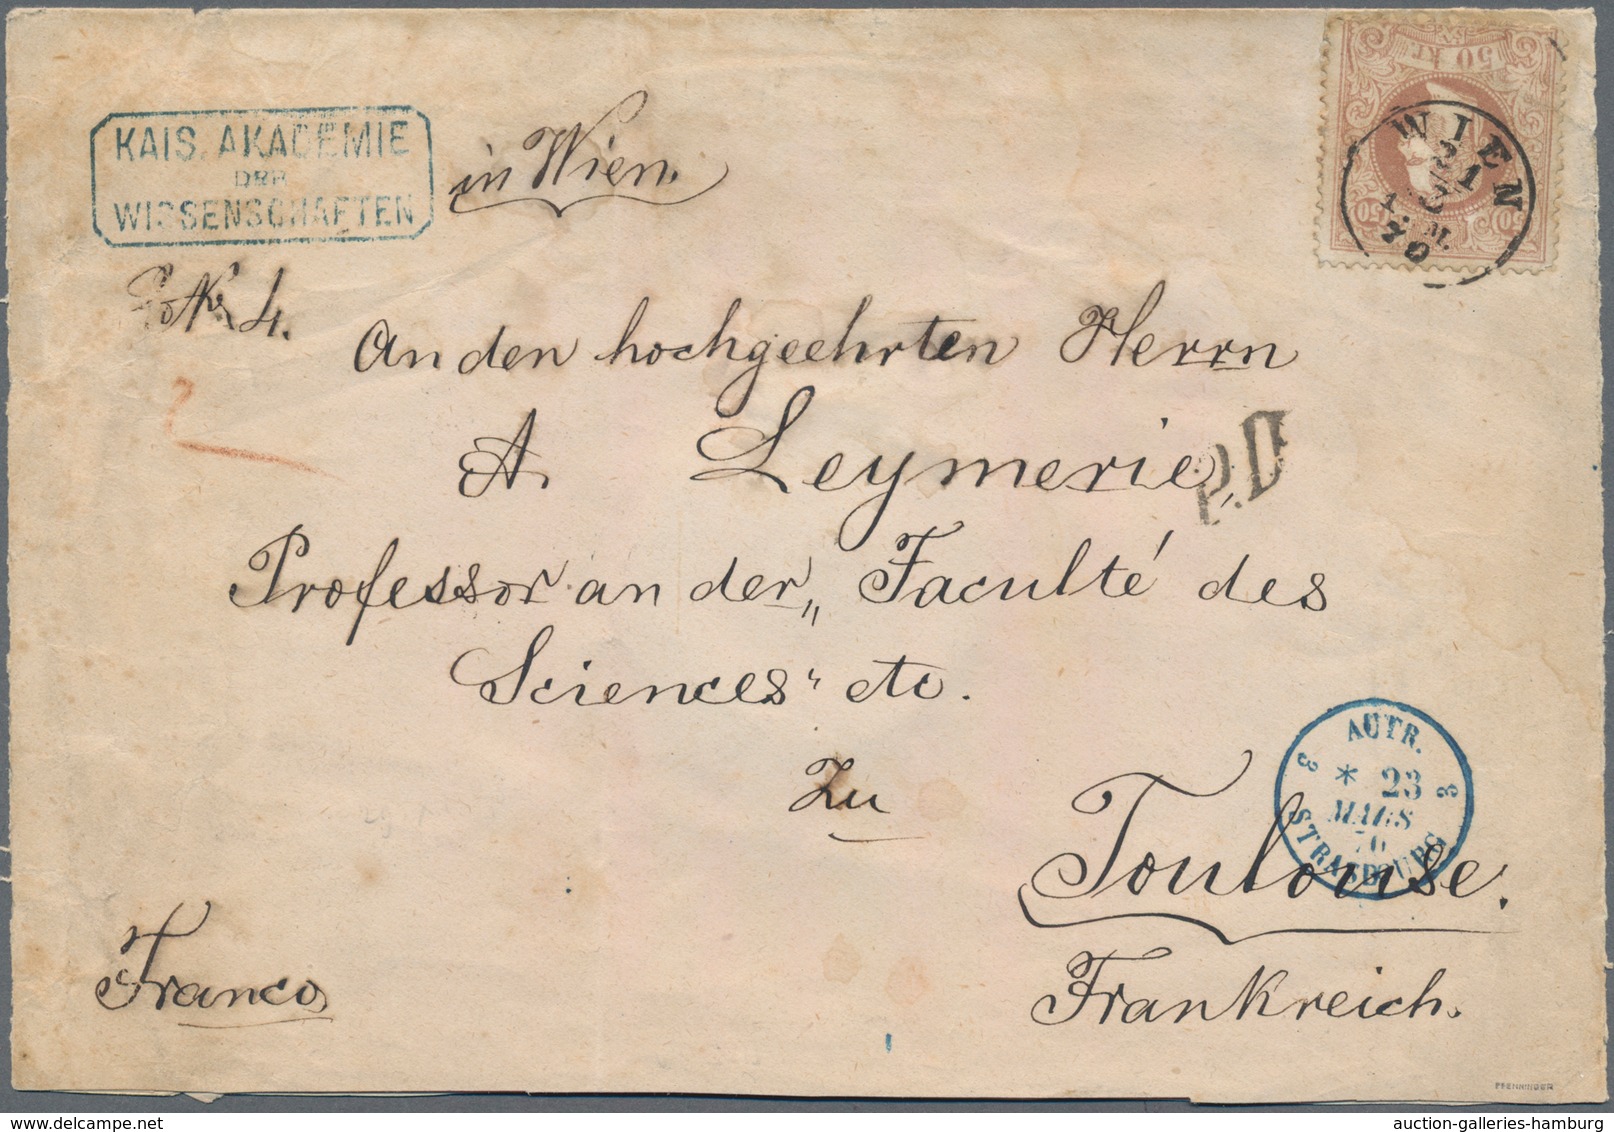 KAIS. AKADEMIE
DER
WISSENSCHAFTEN
in Wien.
50 kr.
50
50
WIEN
21
70
No 4.
An den hochgeehrten Herrn
A. Leymerie,
P.D
Professor an der „Faculté des
Sciences" etc.
zu
Toulouse.
Frankreich.
Franco
AUTR.
3 * 23 3
MARS
70
STRASBOURG
PFENNINGER
auction-galleries-hamburg